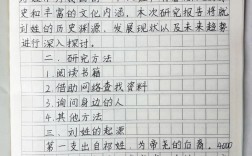 史和丰富的文化内涵，本次研究报告将就
刘姓的历史渊源，发展现状以及未来趋势
进行深入探讨。
二、研究方法
1.阅读书籍
2.借助网络查找资料
3.询问身边的人
4.其他方法
三、刘姓的起源
第一支出自祁姓，为帝尧的后裔，4000